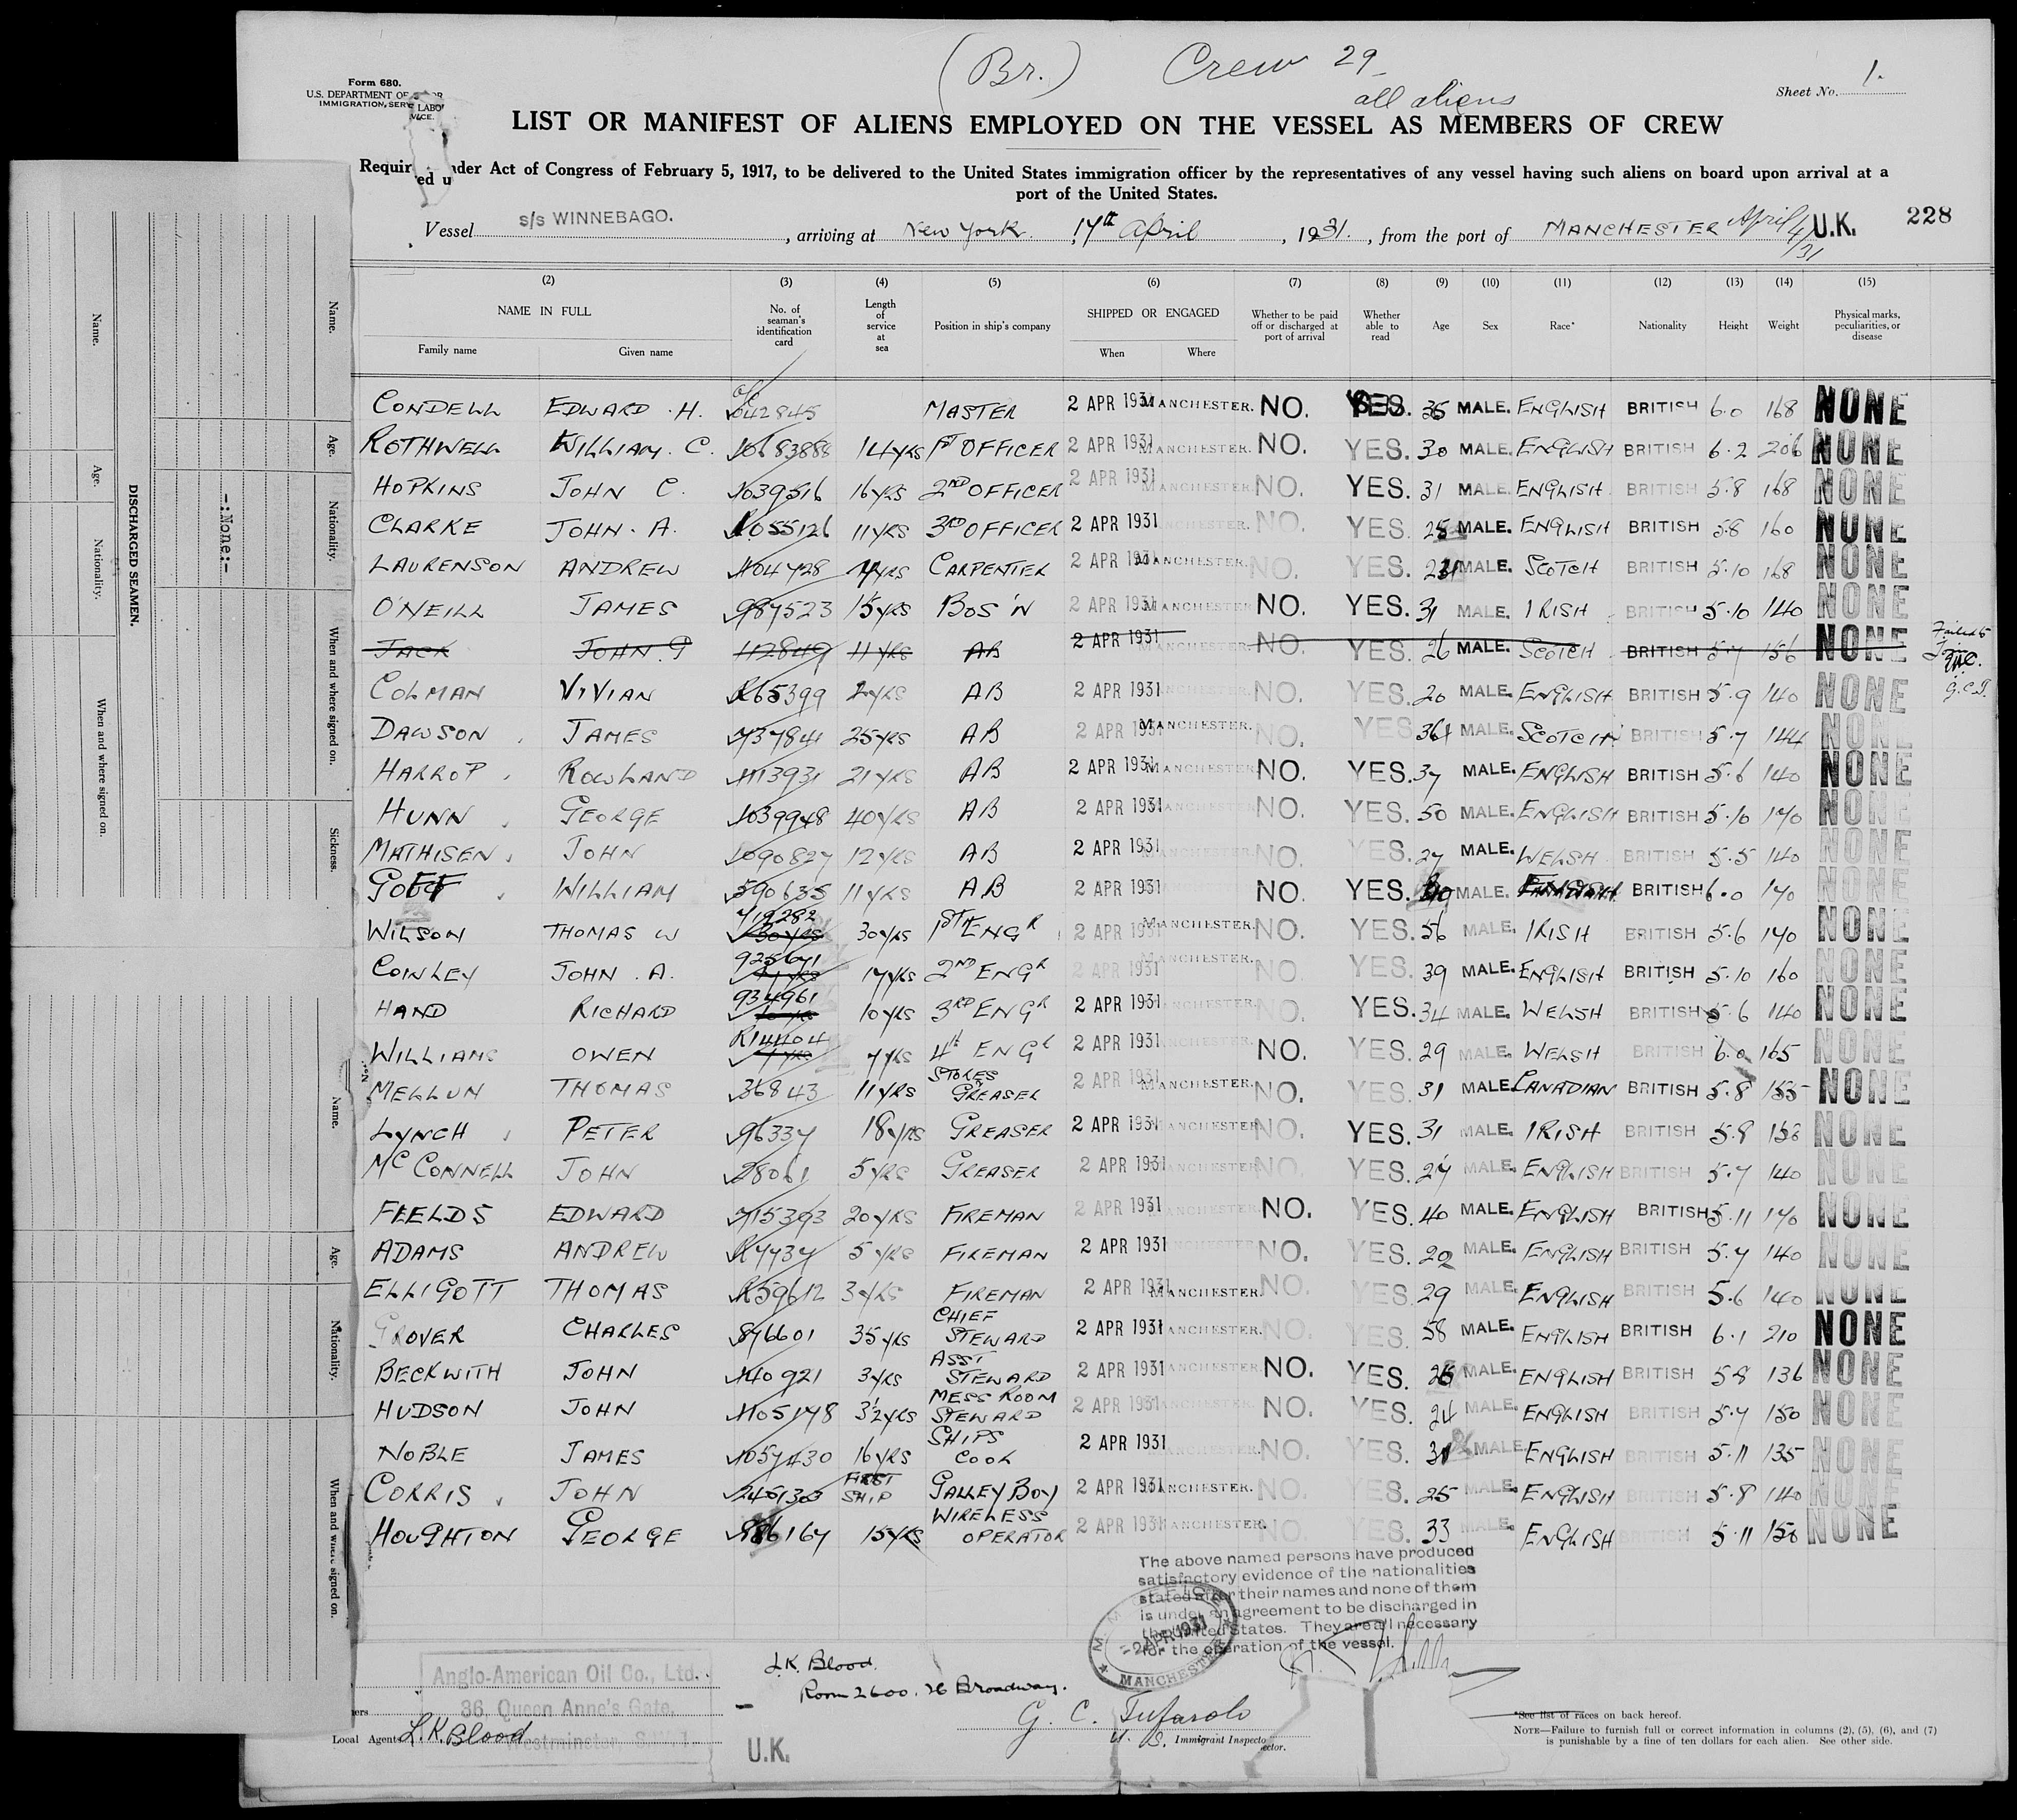 (Br.) Crew 29
all aliens
Form 680.
U.S. DEPARTMENT OF LABOR
IMMIGRATION SERVICE.
Sheet No. 1.
LIST OR MANIFEST OF ALIENS EMPLOYED ON THE VESSEL AS MEMBERS OF CREW
Required under Act of Congress of February 5, 1917, to be delivered to the United States immigration officer by the representatives of any vessel having such aliens on board upon arrival at a
port of the United States.
Vessel s/s WINNEBAGO. , arriving at New York. 14th April , 1931. , from the port of MANCHESTER April 4/31 U.K. 228
(2) (3) (4) (5) (6) (7) (8) (9) (10) (11) (12) (13) (14) (15)
NAME IN FULL No. of seaman's identification card Length of service at sea Position in ship's company SHIPPED OR ENGAGED Whether to be paid off or discharged at port of arrival Whether able to read Age Sex Race* Nationality Height Weight Physical marks, peculiarities, or disease
Family name Given name When Where
CONDELL EDWARD . H. 042845 MASTER 2 APR 1931 MANCHESTER. NO. YES. 35 MALE. ENGLISH BRITISH 6.0 168 NONE
ROTHWELL WILLIAM. C. 14YRS 1ST OFFICER 2 APR 1931 MANCHESTER. NO. YES. 30 MALE. ENGLISH BRITISH 6.2 206 NONE
HOPKINS JOHN C. 1039516 16YRS 2ND OFFICER 2 APR 1931 MANCHESTER NO. YES. 31 MALE. ENGLISH BRITISH 5.8 168 NONE
CLARKE JOHN . A. 1055126 11YRS 3RD OFFICER 2 APR 1931 MANCHESTER. NO. YES. 25 MALE. ENGLISH BRITISH 5.8 160 NONE
LAURENSON ANDREW 1104728 CARPENTER 2 APR 1931 MANCHESTER. NO. YES. MALE. SCOTCH BRITISH 5.10 168 NONE
O'NEILL JAMES 987523 15YRS BOS'N 2 APR 1931 MANCHESTER NO. YES. 31 MALE. IRISH BRITISH 5.10 140 NONE
JACK JOHN. G 112849 11YRS AB 2 APR 1931 MANCHESTER NO. YES. 26 MALE. SCOTCH BRITISH 5.7 156 NONE Failed to Join
COLMAN VIVIAN R65399 2YRS AB 2 APR 1931 MANCHESTER NO. YES. 20 MALE. ENGLISH BRITISH 5.9 140 NONE G.C.T.
DAWSON JAMES 737841 25YRS AB 2 APR 1931 MANCHESTER. NO. YES 36 MALE. SCOTCH BRITISH 5.7 144 NONE
HARROP ROWLAND 1113931 21YRS AB 2 APR 1931 MANCHESTER NO. YES. 37 MALE. ENGLISH BRITISH 5.6 140 NONE
HUNN GEORGE 1039948 40YRS AB 2 APR 1931 MANCHESTER NO. YES. 50 MALE. ENGLISH BRITISH 5.10 170 NONE
MATHISEN JOHN 1090827 12YRS AB 2 APR 1931 MANCHESTER NO. YES. 27 MALE. WELSH BRITISH 5.5 140 NONE
GOFF WILLIAM 590635 11YRS AB 2 APR 1931 NO. YES. MALE. BRITISH 6.0 170 NONE
WILSON THOMAS W 719282 30YRS 1ST ENGR 2 APR 1931 MANCHESTER. NO. YES. 56 MALE. IRISH BRITISH 5.6 170 NONE
COINLEY JOHN . A. 925671 17YRS 2ND ENGR 2 APR 1931 MANCHESTER. NO. YES. 39 MALE. ENGLISH BRITISH 5.10 160 NONE
HAND RICHARD 934961 10YRS 3RD ENGR 2 APR 1931 MANCHESTER. NO. YES. 34 MALE. WELSH BRITISH 5.6 140 NONE
WILLIAMS OWEN R14404 7YRS 4th ENGR 2 APR 1931 MANCHESTER. NO. YES. 29 MALE. WELSH BRITISH 6.0 165 NONE
MELLUN THOMAS 36843 11YRS STORES GREASER 2 APR 1931 MANCHESTER. NO. YES. 31 MALE. CANADIAN BRITISH 5.8 155 NONE
LYNCH PETER 96337 18YRS GREASER 2 APR 1931 MANCHESTER NO. YES. 31 MALE. IRISH BRITISH 5.8 158 NONE
McCONNELL JOHN 28061 5YRS GREASER 2 APR 1931 MANCHESTER NO. YES. 27 MALE. ENGLISH BRITISH 5.7 140 NONE
FIELDS EDWARD 715393 20YRS FIREMAN 2 APR 1931 MANCHESTER NO. YES. 40 MALE. ENGLISH BRITISH 5.11 170 NONE
ADAMS ANDREW R7737 5YRS FIREMAN 2 APR 1931 MANCHESTER NO. YES. 20 MALE. ENGLISH BRITISH 5.7 140 NONE
ELLIGOTT THOMAS R59612 3YRS FIREMAN 2 APR 1931 MANCHESTER. NO. YES. 29 MALE. ENGLISH BRITISH 5.6 140 NONE
GROVER CHARLES 876601 35YRS CHIEF STEWARD 2 APR 1931 MANCHESTER. NO. YES. 58 MALE. ENGLISH BRITISH 6.1 210 NONE
BECKWITH JOHN 1140921 3YRS ASST STEWARD 2 APR 1931 MANCHESTER. NO. YES. MALE. ENGLISH BRITISH 5.8 136 NONE
HUDSON JOHN 1105148 3½YRS MESS ROOM STEWARD 2 APR 1931 MANCHESTER NO. YES. 24 MALE. ENGLISH BRITISH 5.7 150 NONE
NOBLE JAMES 1057430 16YRS SHIPS COOK 2 APR 1931 MANCHESTER. NO. YES. MALE. ENGLISH BRITISH 5.11 135 NONE
CORRIS JOHN FIRST SHIP GALLEY BOY 2 APR 1931 MANCHESTER. NO. YES. 25 MALE. ENGLISH BRITISH 5.8 140 NONE
HOUGHTON GEORGE 15YRS WIRELESS OPERATOR 2 APR 1931 MANCHESTER. NO. YES. 33 MALE. ENGLISH BRITISH 5.11 150 NONE
The above named persons have produced
satisfactory evidence of the nationalities
stated after their names and none of them
is under an agreement to be discharged in
the United States. They are all necessary
for the operation of the vessel.
2 APR 1931
MANCHESTER
Anglo-American Oil Co., Ltd.
36, Queen Anne's Gate,
Westminster S.W.1
L.K. Blood.
Room 2600, 26 Broadway.
Local Agents L.K. Blood
U.K.
G. C. Tufarolo
U. S. Immigrant Inspector.
*See list of races on back hereof.
NOTE—Failure to furnish full or correct information in columns (2), (5), (6), and (7)
is punishable by a fine of ten dollars for each alien. See other side.
DISCHARGED SEAMEN.
Name. Age. Nationality. When and where signed on.
Name. Age. Nationality. When and where signed on. Sickness.
-:None:-
Name. Age. Nationality. When and where signed on.